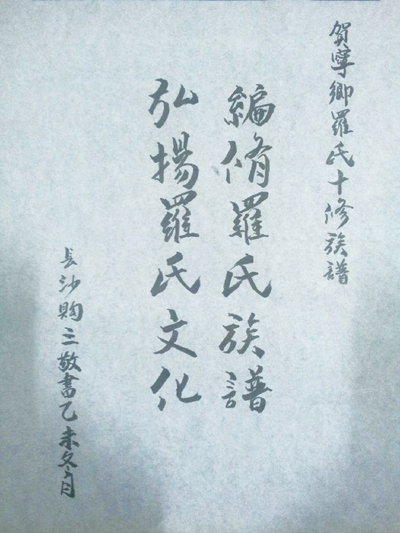 賀寧鄉羅氏十修族譜
編脩羅氏族譜
弘揚羅氏文化
長沙陶三敬書乙未冬月